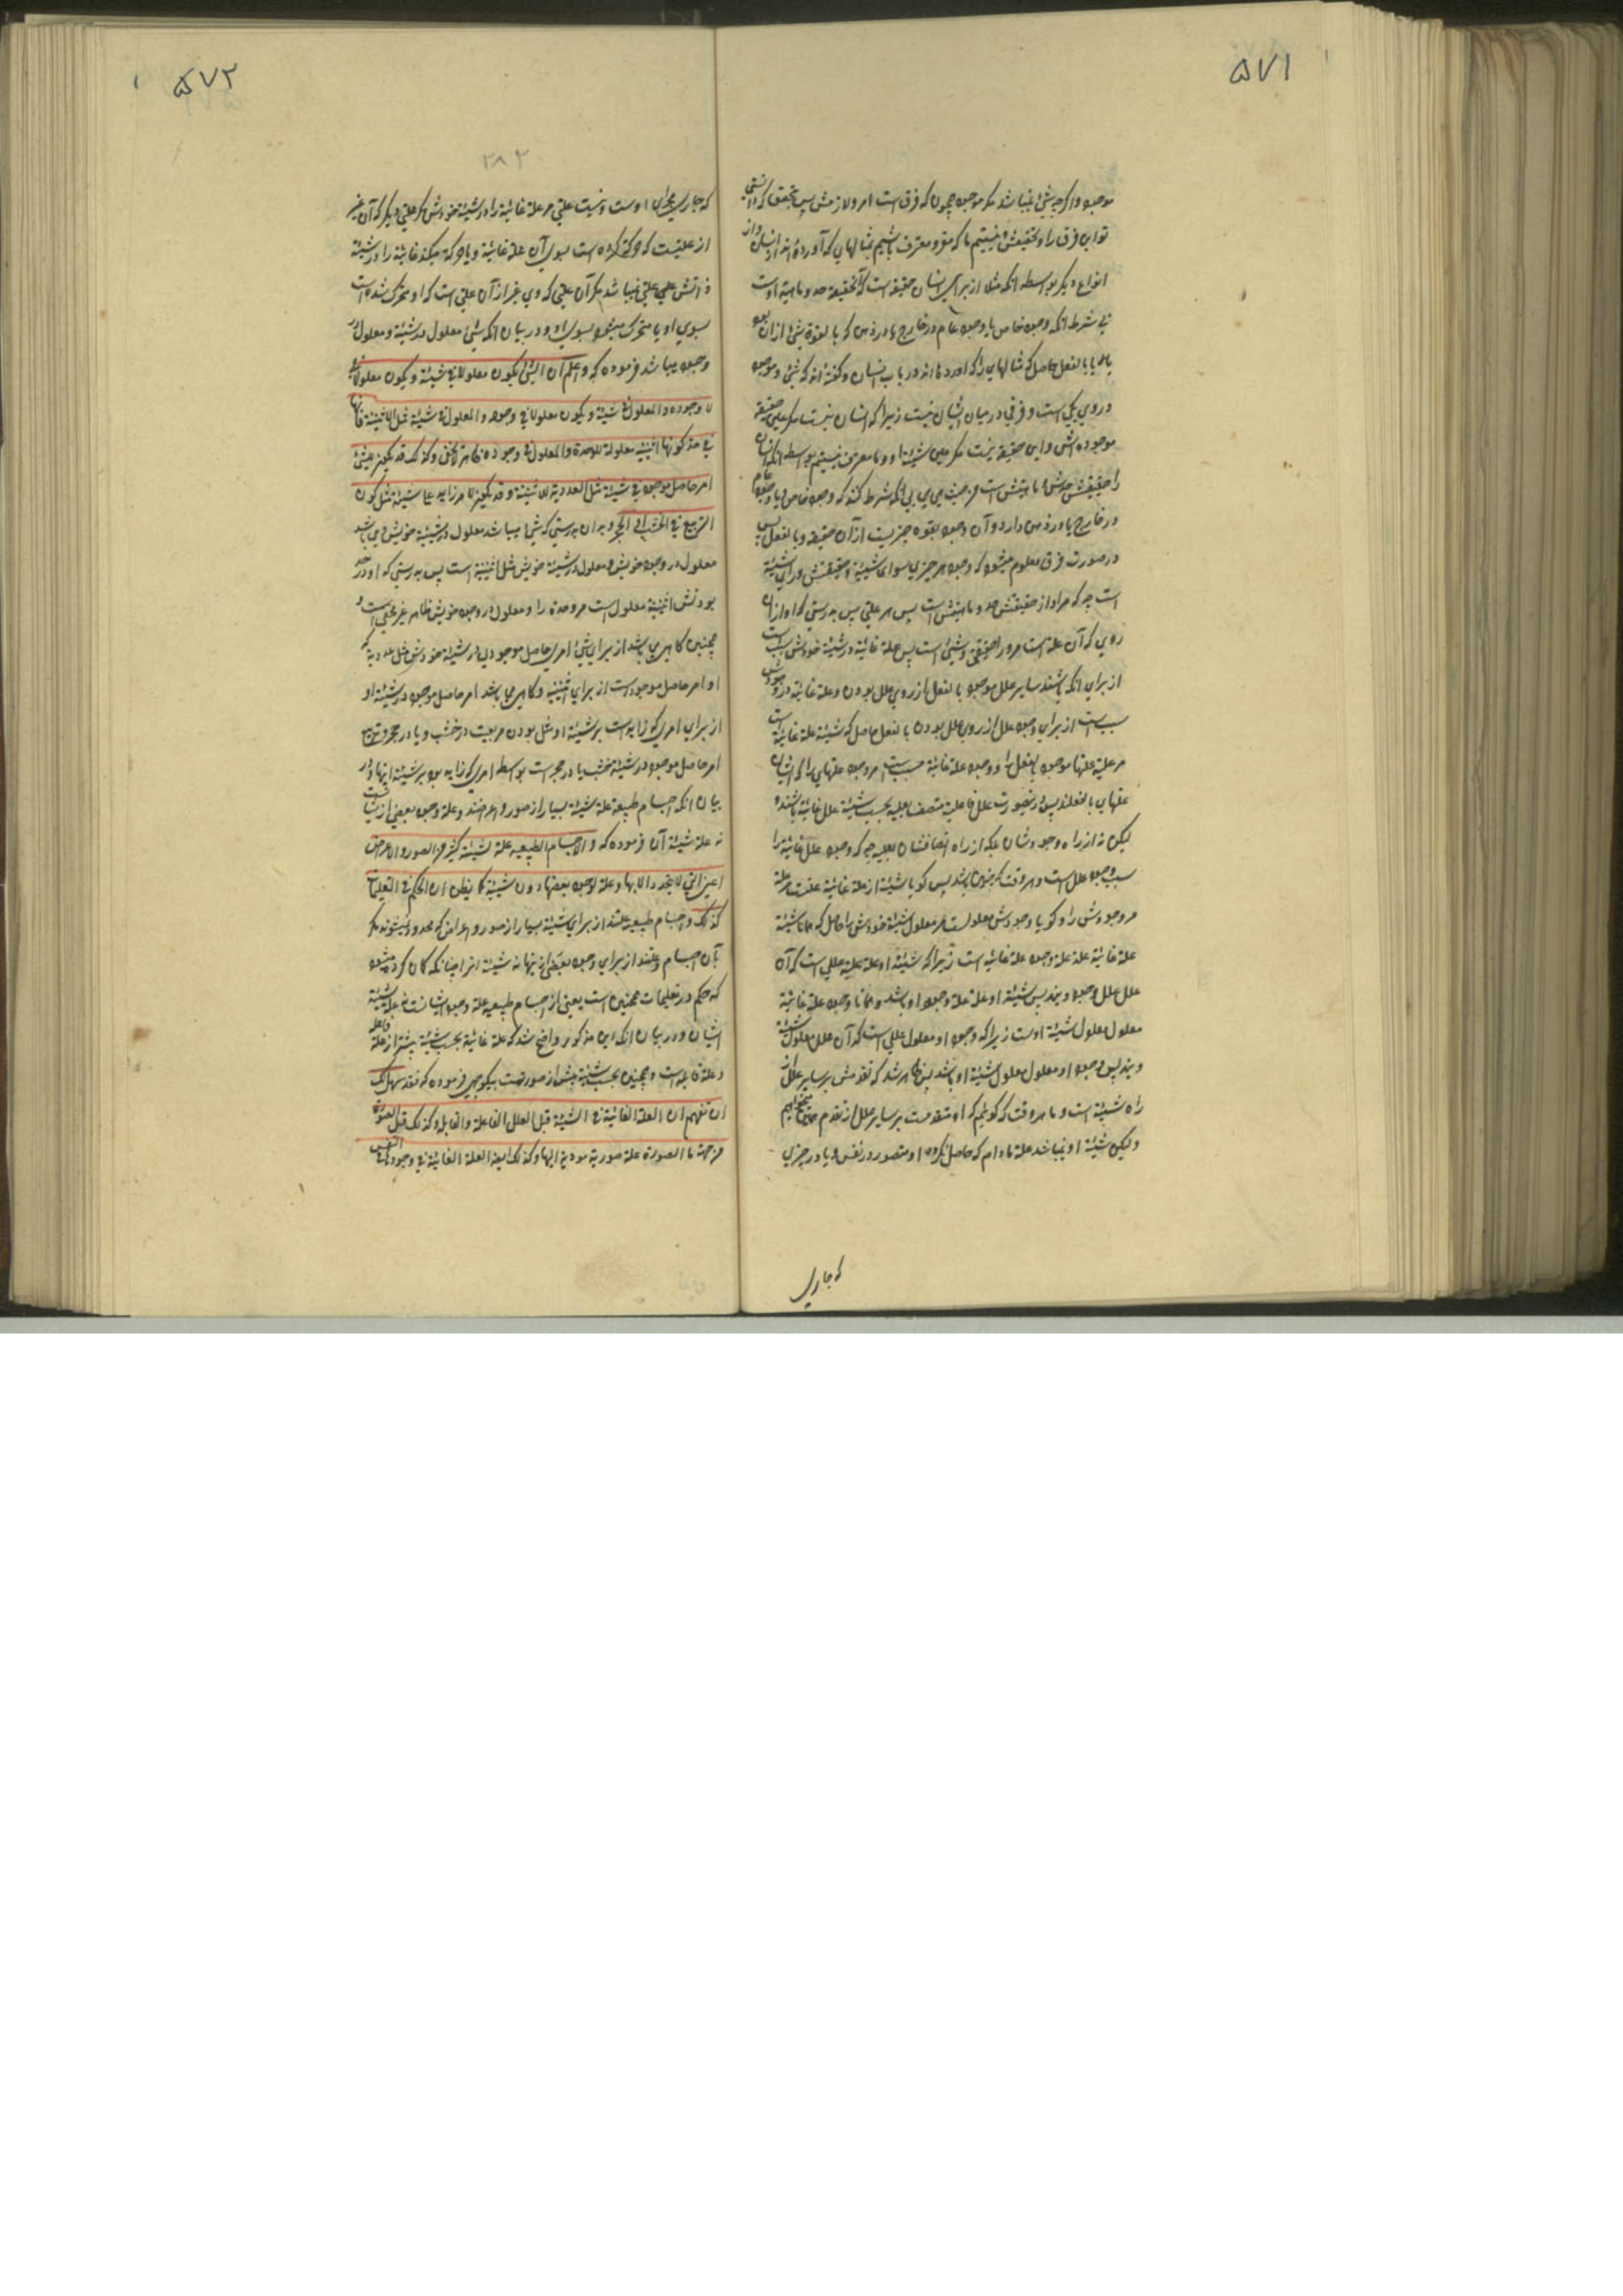 ۵۷۱
موجود و اگرچه شیئ نمیباشد مگر موجود همچون که فرق است امر ولازمش پس بتحقیق که دانستی
تو این فرق را و بتحقیقش و نیستیم ما که مقر و معترف باشیم بمثالهایی که آورده اند از انسان و از
انواع دیگر بواسطه انکه مثل از برای انسان حقیقة است که آنحقیقة حد و ماهیة اوست
بی شرط انکه وجود خاص یا وجود عام در خارج یا در ذهن که یا بالقوة شیئ از ان بود
یا بالفعل حاصل که مثالهایی را که آورده اند در باب انسان و گفته اند که شیئ و موجود
در وی یکی است و فرقی در میان ایشان نیست زیرا که انسان نیست مگر عین حقیقة
موجوده اش و این حقیقة نیست مگر عین شیئیة او و ما معترف نیستیم بواسطه انکه انسان
را حقیقتش حدش و ماهیتش است من حیث هی هی بی انکه شرط کنند که وجود خاص و یا وجود عام
در خارج یا در ذهن دارد و آن وجود بقوه چیزیست از آن حقیقة و یا بالفعل پس
در صورت فرق معلوم میشود که وجود هر چیزی سوای شیئیة و حقیقتش ورای شیئیة
است چه که مراد از حقیقتش حد و ماهیتش است پس هر علتی پس بدرستی که او از ان
روی که آن علة است مر او را حقیقتی و شیئی است پس علة غائیة در شیئیة خودش سبب است
از برای انکه باشند سایر علل موجود بالفعل از روی علل بودن و علة غائیة در وجودش
سبب است از برای وجود علل از روی علل بودن بالفعل حاصل که شیئیة علة غائیة
مر علیة علتها موجود بالفعل را و وجود علة غائیة مسبب است مر وجود علتهای را که ایشان
علتهای بالفعلند پس در نیصورت علل فاعلیة متصف بعلیة بحسب شیئیة علل غائیة باشند و
لیکن نه از راه وجودشان بلکه از راه اتصافشان بعلیة چه که وجود علل غائیة را
سبب وجود علل است و هر وقت که چنین باشد پس گویا شیئیة از علة غائیة علت علة
مر وجودش را و گویا وجودش معلولست مر معلول شیئیة خودش را حاصل که همانا شیئیة
علة غائیة علة علة وجود علة غائیه است زیرا که شیئیة او علة علیة عللی است که آن
علل علل وجود ویند پس شیئیة او علة علة وجود او باشد و همانا وجود علة غائیة
معلول معلول شیئیة اوست زیرا که وجود او معلول عللی است که آن علل معلول شیئیة
ویند پس وجود او معلول معلول شیئیة او باشد پس ظاهر شد که تقدمش بر سایر علل از
راه شیئیة است و ما هر وقت که گوئیم که او متقدمست بر سایر علل از تقدم همین میخواهیم
و لیکن شیئیة او نمیباشد علة مادام که حاصل نگردد او متصور در نفس و یا در چیزی
که جاری
۵۷۲
۲۸۲
که جاری مجرای اوست و نیست علتی مر علة غائیة را در شیئیة خودش مگر علتی دیگر که آن غیر
از علتیست که حرکة کرده است بسوی آن علة غائیة و یا حرکة میکند غائیة را در شیئیة
ذاتش علتی نمیباشد مگر آن علتی که وی غیر از آن علتی است که او متحرک شده است
بسوی او یا متحرک میشود بسوی او و در بیان انکه شیئ معلول در شیئیة و معلول در
وجود میباشد فرموده که واعلم ان الشیئ یکون معلولا فی شیئیة و یکون معلولا فی
وجوده والمعلول فی شیئیة و یکون معلولا فی وجوده والمعلول فی شیئیة مثل الاثنینیة فانها
فی حد کونها اثنینیة معلولة للوحدة والمعلول فی وجوده ظاهر لا یخفی وکذلک قد یکون للشیئ
امر حاصل موجود فی شیئیة مثل العددیة للاثنینیة وقد یکون لامر زاید علی شیئیة مثل کون
التربیع فی الخشب او الحجر و بدان بدرستی که شیئ میباشد معلول در شیئیة خویش و می باشد
معلول در وجود خویش و معلول در شیئیة خویش مثل اثنینیة است پس بدرستی که او در حد
بودنش اثنینیة معلول است مر وحدة را و معلول در وجود خویش ظاهر غیر مخفی است و
همچنین گاهی می باشد از برای شیئ امری حاصل موجودی در شیئیة خودش مثل عددیة که
او امر حاصل موجود است از برای اثنینیة و گاهی می باشد امر حاصل موجود در شیئیة او
از برای امری که زاید است بر شیئیة او مثل بودن مربعیت در خشب و یا در حجر و تربیع
امر حاصل موجود در شیئیة خشب یا در حجر است بواسطه امری که زاید بود بر شیئیة اینها و در
بیان انکه اجسام طبیعة علة شیئیة بسیار از صور و اعراضند و علة وجود بعضی از ایشانست
نه علة شیئیة آن فرموده که والاجسام الطبیعیة علة لشیئیة کثیر من الصور والاعراض
اعنی التی لا یتحدد الا بها و علة لوجود بعضها دون شیئیة کما یظن ان الحکم فی التعلیمیات
کذلک و اجسام طبیعیه علتند از برای شیئیة بسیار از صور و اعراض که محدود نمیشوند مگر
بآن اجسام و علتند از برای وجود بعضی از اینها نه شیئیة انها چنانکه گمان کرده میشود
که حکم در تعلیمیات همچنین است یعنی از اجسام طبیعیه علة وجود ایشانست نه علة شیئیة
ایشان و در بیان انکه این مذکور واضح شد که علة غائیة بحسب شیئیة پیشتر از علة فاعله
و علة قابله است و همچنین بحسب شیئیة پیش از صورتست بیک وجهی فرموده که فقد سهل لک
ان تفهم ان العلة الغائیة فی الشیئیة قبل العلل الفاعلة والقابلة وکذلک قبل الصورة
من جهة ما الصورة علة صوریة مودیة الیها وکذلک ایضا العلة الغائیة فی وجودها فی النفس